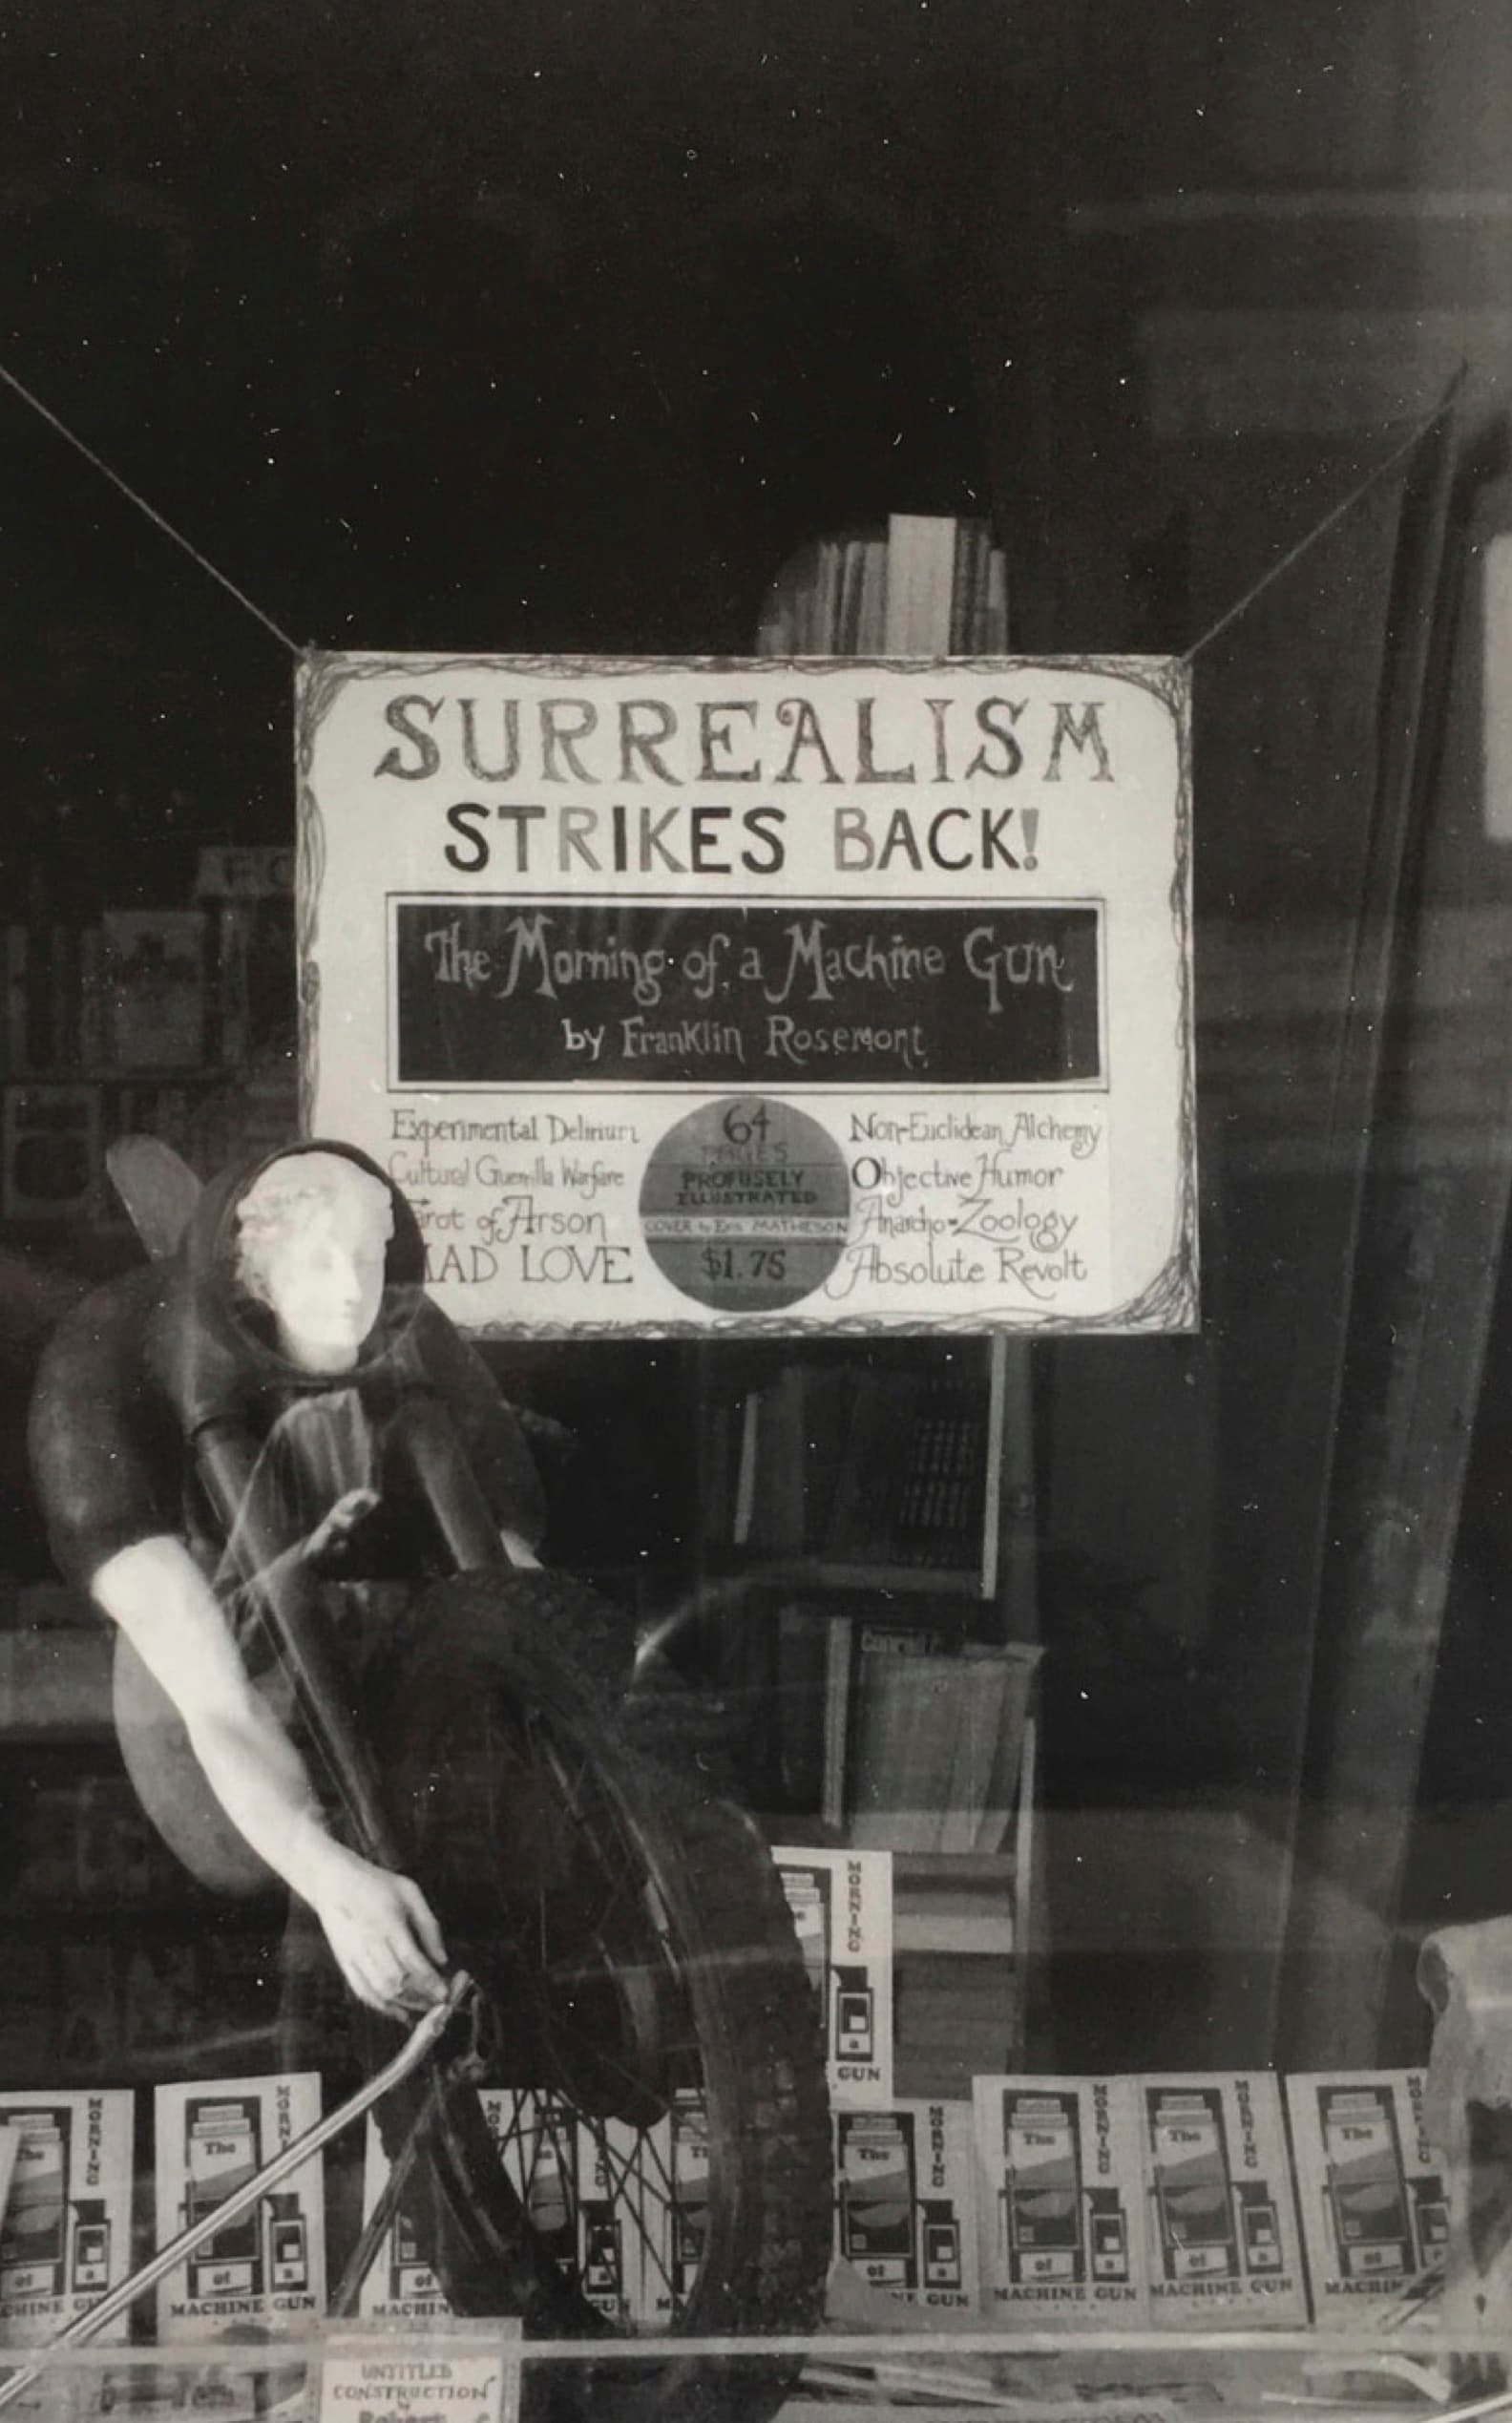 SURREALISM
STRIKES BACK!
The Morning of a Machine Gun
by Franklin Rosemont
Experimental Delirium
Cultural Guerrilla Warfare
Tarot of Arson
MAD LOVE
64
PAGES
PROFUSELY
ILLUSTRATED
COVER by Eric MATHESON
$1.75
Non-Euclidean Alchemy
Objective Humor
Anarcho-Zoology
Absolute Revolt
MORNING
a
GUN
The
MORNING
of
a
CHINE GUN
The
MORNING
of
a
MACHINE GUN
of
MACHIN
GUN
The
MORNING
of
a
NE GUN
The
MORNING
of
a
MACHINE GUN
The
MORNING
of
a
MACHINE GUN
The
MORNING
of
MACHIN
UNTITLED
CONSTRUCTION
by
Robert